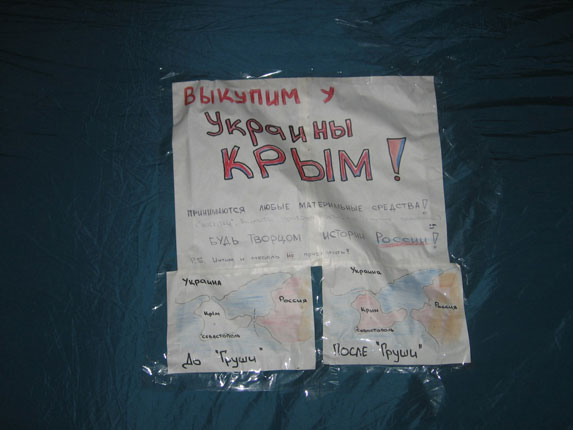 ВЫКУПИМ У
УКРАИНЫ
КРЫМ!
ПРИНИМАЮТСЯ ЛЮБЫЕ МАТЕРИАЛЬНЫЕ СРЕДСТВА!
БУДЬ ТВОРЦОМ ИСТОРИИ РОССИИ!
P.S.
Украина
Россия
Крым
Севастополь
До "Груши"
Украина
Россия
Крым
Севастополь
ПОСЛЕ "Груши"